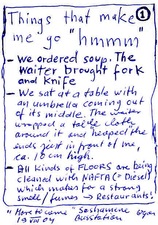 Things that make
me go "hmmm"
①
- We ordered soup. The
waiter brought fork
and knife
- We sat at a table with
an umbrella coming out
of its middle. The waiter
wrapped a table cloth
around it and heaped the
ends right in front of me,
ca. 15 cm high.
- All kinds of FLOORS are being
cleaned with NAFTA (= Diesel)
which makes for a strong
smell/fumes → Restaurants!
"More to come" Sashamene
Busstation